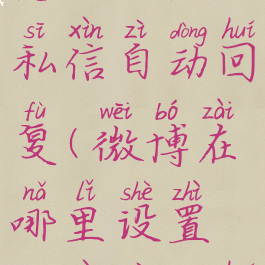 sī xìn zì dòng huí
私信自动回
fù wēi bó zài
复(微博在
nǎ lǐ shè zhì
哪里设置